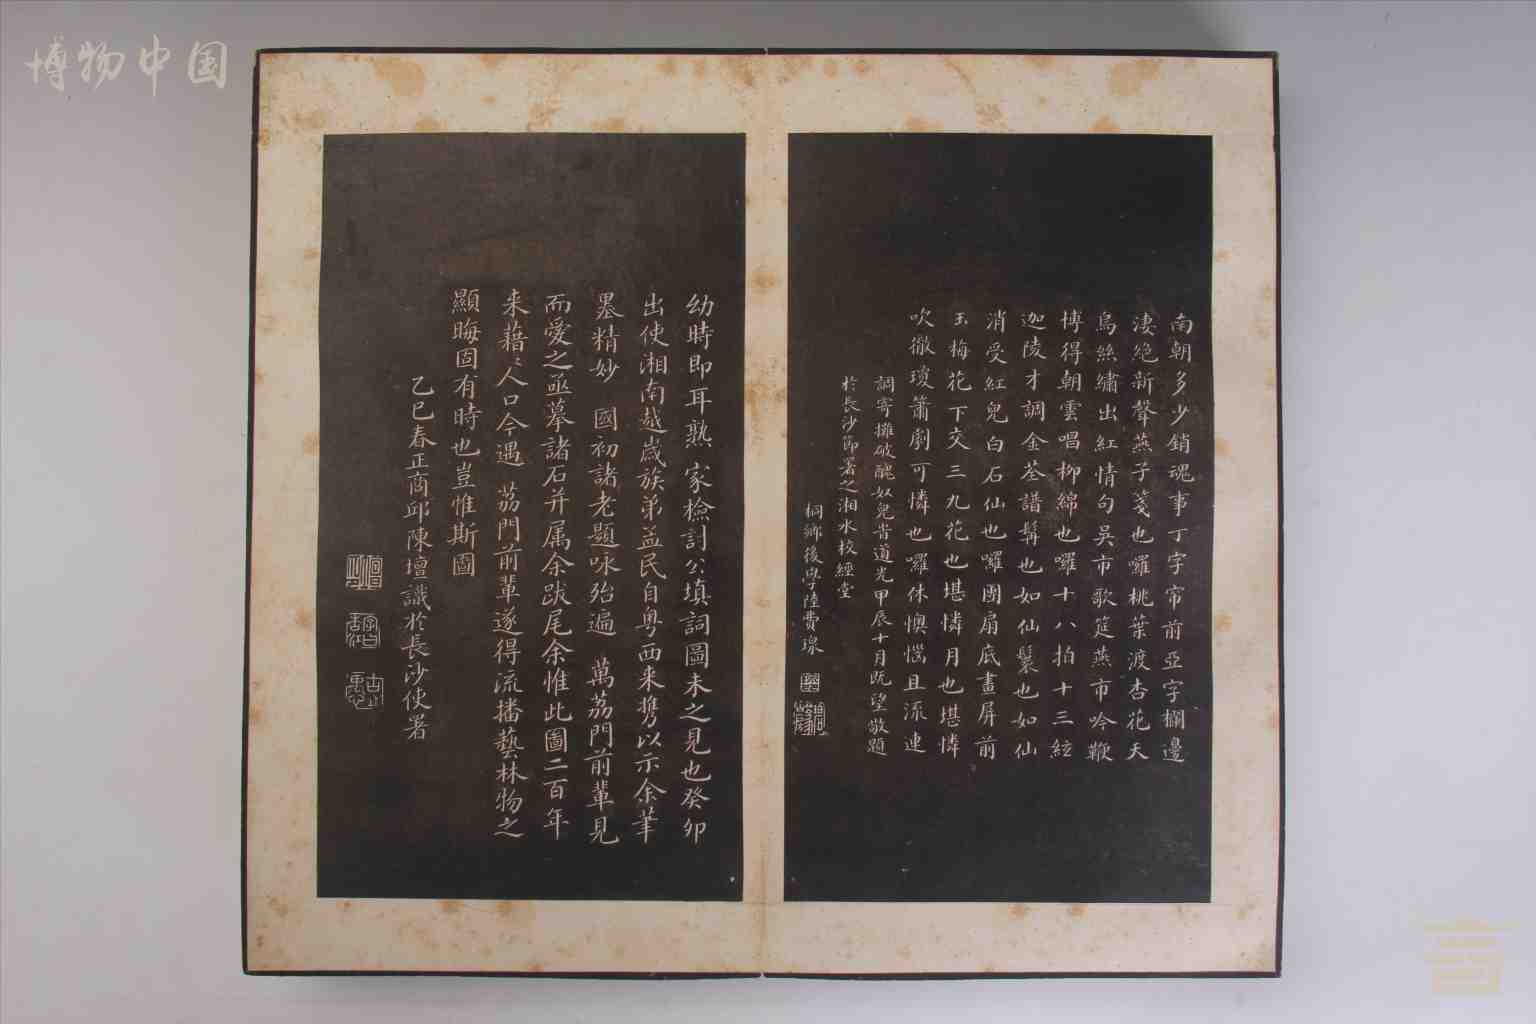 博物中国
南朝多少銷魂事丁字帘前亞字欄邊
淒絶新聲燕子箋也囉桃葉渡杏花天
烏絲繡出紅情句吳市歌筵燕市吟鞭
博得朝雲唱柳綿也囉十八拍十三絃
迦陵才調金荃譜髯也如仙鬟也如仙
消受紅兒白石仙也囉團扇底畫屏前
玉梅花下交三九花也堪憐月也堪憐
吹徹瓊簫劇可憐也囉休懊惱且流連
調寄攤破醜奴兒旹道光甲辰十月既望敬題
於長沙節署之湘水校經堂
桐鄉後學陸費瑔
幼時即耳熟 家檢討公填詞圖未之見也癸卯
出使湘南越歲族弟益民自粤西来携以示余筆
墨精妙 國初諸老題咏殆遍 萬荔門前輩見
而愛之亟摹諸石并属余跋尾余惟此圖二百年
来藉〻人口今遇 荔門前輩遂得流播藝林物之
顯晦固有時也豈惟斯圖
乙巳春正商邱陳壇識於長沙使署